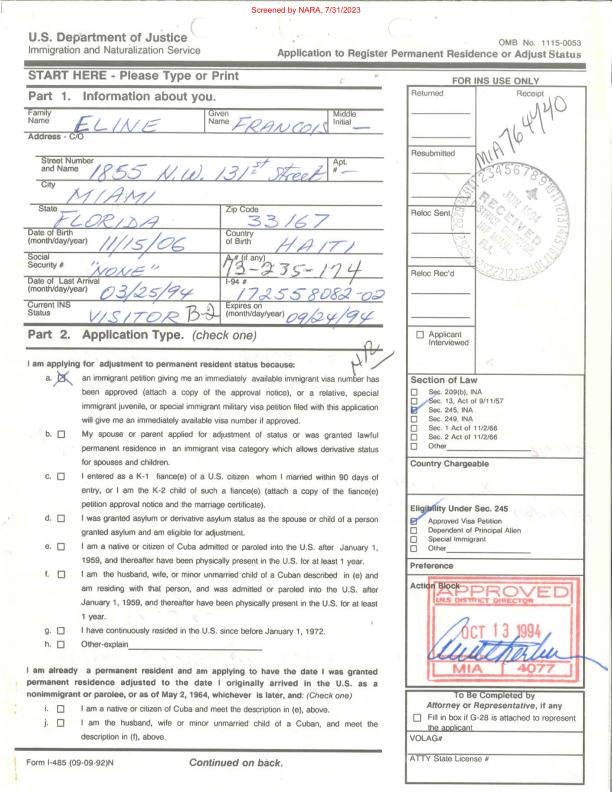 Screened by NARA, 7/31/2023
U.S. Department of Justice
Immigration and Naturalization Service
OMB No. 1115-0053
Application to Register Permanent Residence or Adjust Status
START HERE - Please Type or Print
Part 1. Information about you.
Family Name ELINE
Given Name FRANCOIS
Middle Initial —
Address - C/O
Street Number and Name 1855 N.W. 131st Street
Apt. # —
City MIAMI
State FLORIDA
Zip Code 33167
Date of Birth (month/day/year) 11/15/06
Country of Birth HAITI
Social Security # "NONE"
A # (if any) 73-235-174
Date of Last Arrival (month/day/year) 03/25/94
I-94 # 172558082-02
Current INS Status VISITOR B-2
Expires on (month/day/year) 09/24/94
Part 2. Application Type. (check one)
I am applying for adjustment to permanent resident status because:
a. an immigrant petition giving me an immediately available immigrant visa number has
been approved (attach a copy of the approval notice), or a relative, special
immigrant juvenile, or special immigrant military visa petition filed with this application
will give me an immediately available visa number if approved.
b. My spouse or parent applied for adjustment of status or was granted lawful
permanent residence in an immigrant visa category which allows derivative status
for spouses and children.
c. I entered as a K-1 fiance(e) of a U.S. citizen whom I married within 90 days of
entry, or I am the K-2 child of such a fiance(e) (attach a copy of the fiance(e)
petition approval notice and the marriage certificate).
d. I was granted asylum or derivative asylum status as the spouse or child of a person
granted asylum and am eligible for adjustment.
e. I am a native or citizen of Cuba admitted or paroled into the U.S. after January 1,
1959, and thereafter have been physically present in the U.S. for at least 1 year.
f. I am the husband, wife, or minor unmarried child of a Cuban described in (e) and
am residing with that person, and was admitted or paroled into the U.S. after
January 1, 1959, and thereafter have been physically present in the U.S. for at least
1 year.
g. I have continuously resided in the U.S. since before January 1, 1972.
h. Other-explain
I am already a permanent resident and am applying to have the date I was granted
permanent residence adjusted to the date I originally arrived in the U.S. as a
nonimmigrant or parolee, or as of May 2, 1964, whichever is later, and: (Check one)
i. I am a native or citizen of Cuba and meet the description in (e), above.
j. I am the husband, wife or minor unmarried child of a Cuban, and meet the
description in (f), above.
Form I-485 (09-09-92)N
Continued on back.
FOR INS USE ONLY
Returned
Receipt
MIA 764740
Resubmitted
RECEIVED
Reloc Sent
Reloc Rec'd
Applicant
Interviewed
Section of Law
Sec. 209(b), INA
Sec. 13, Act of 9/11/57
Sec. 245, INA
Sec. 249, INA
Sec. 1 Act of 11/2/66
Sec. 2 Act of 11/2/66
Other
Country Chargeable
Eligibility Under Sec. 245
Approved Visa Petition
Dependent of Principal Alien
Special Immigrant
Other
Preference
Action Block
APPROVED
U.S DISTRICT DIRECTOR
OCT 13 1994
MIA 4077
To Be Completed by
Attorney or Representative, if any
Fill in box if G-28 is attached to represent
the applicant
VOLAG#
ATTY State License #